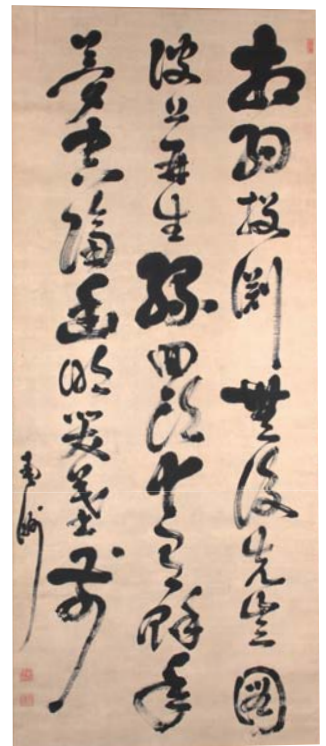 相約投淵無後先豈圖
波上再生縁回頭十有餘年
夢空隔幽明哭墓前
南洲